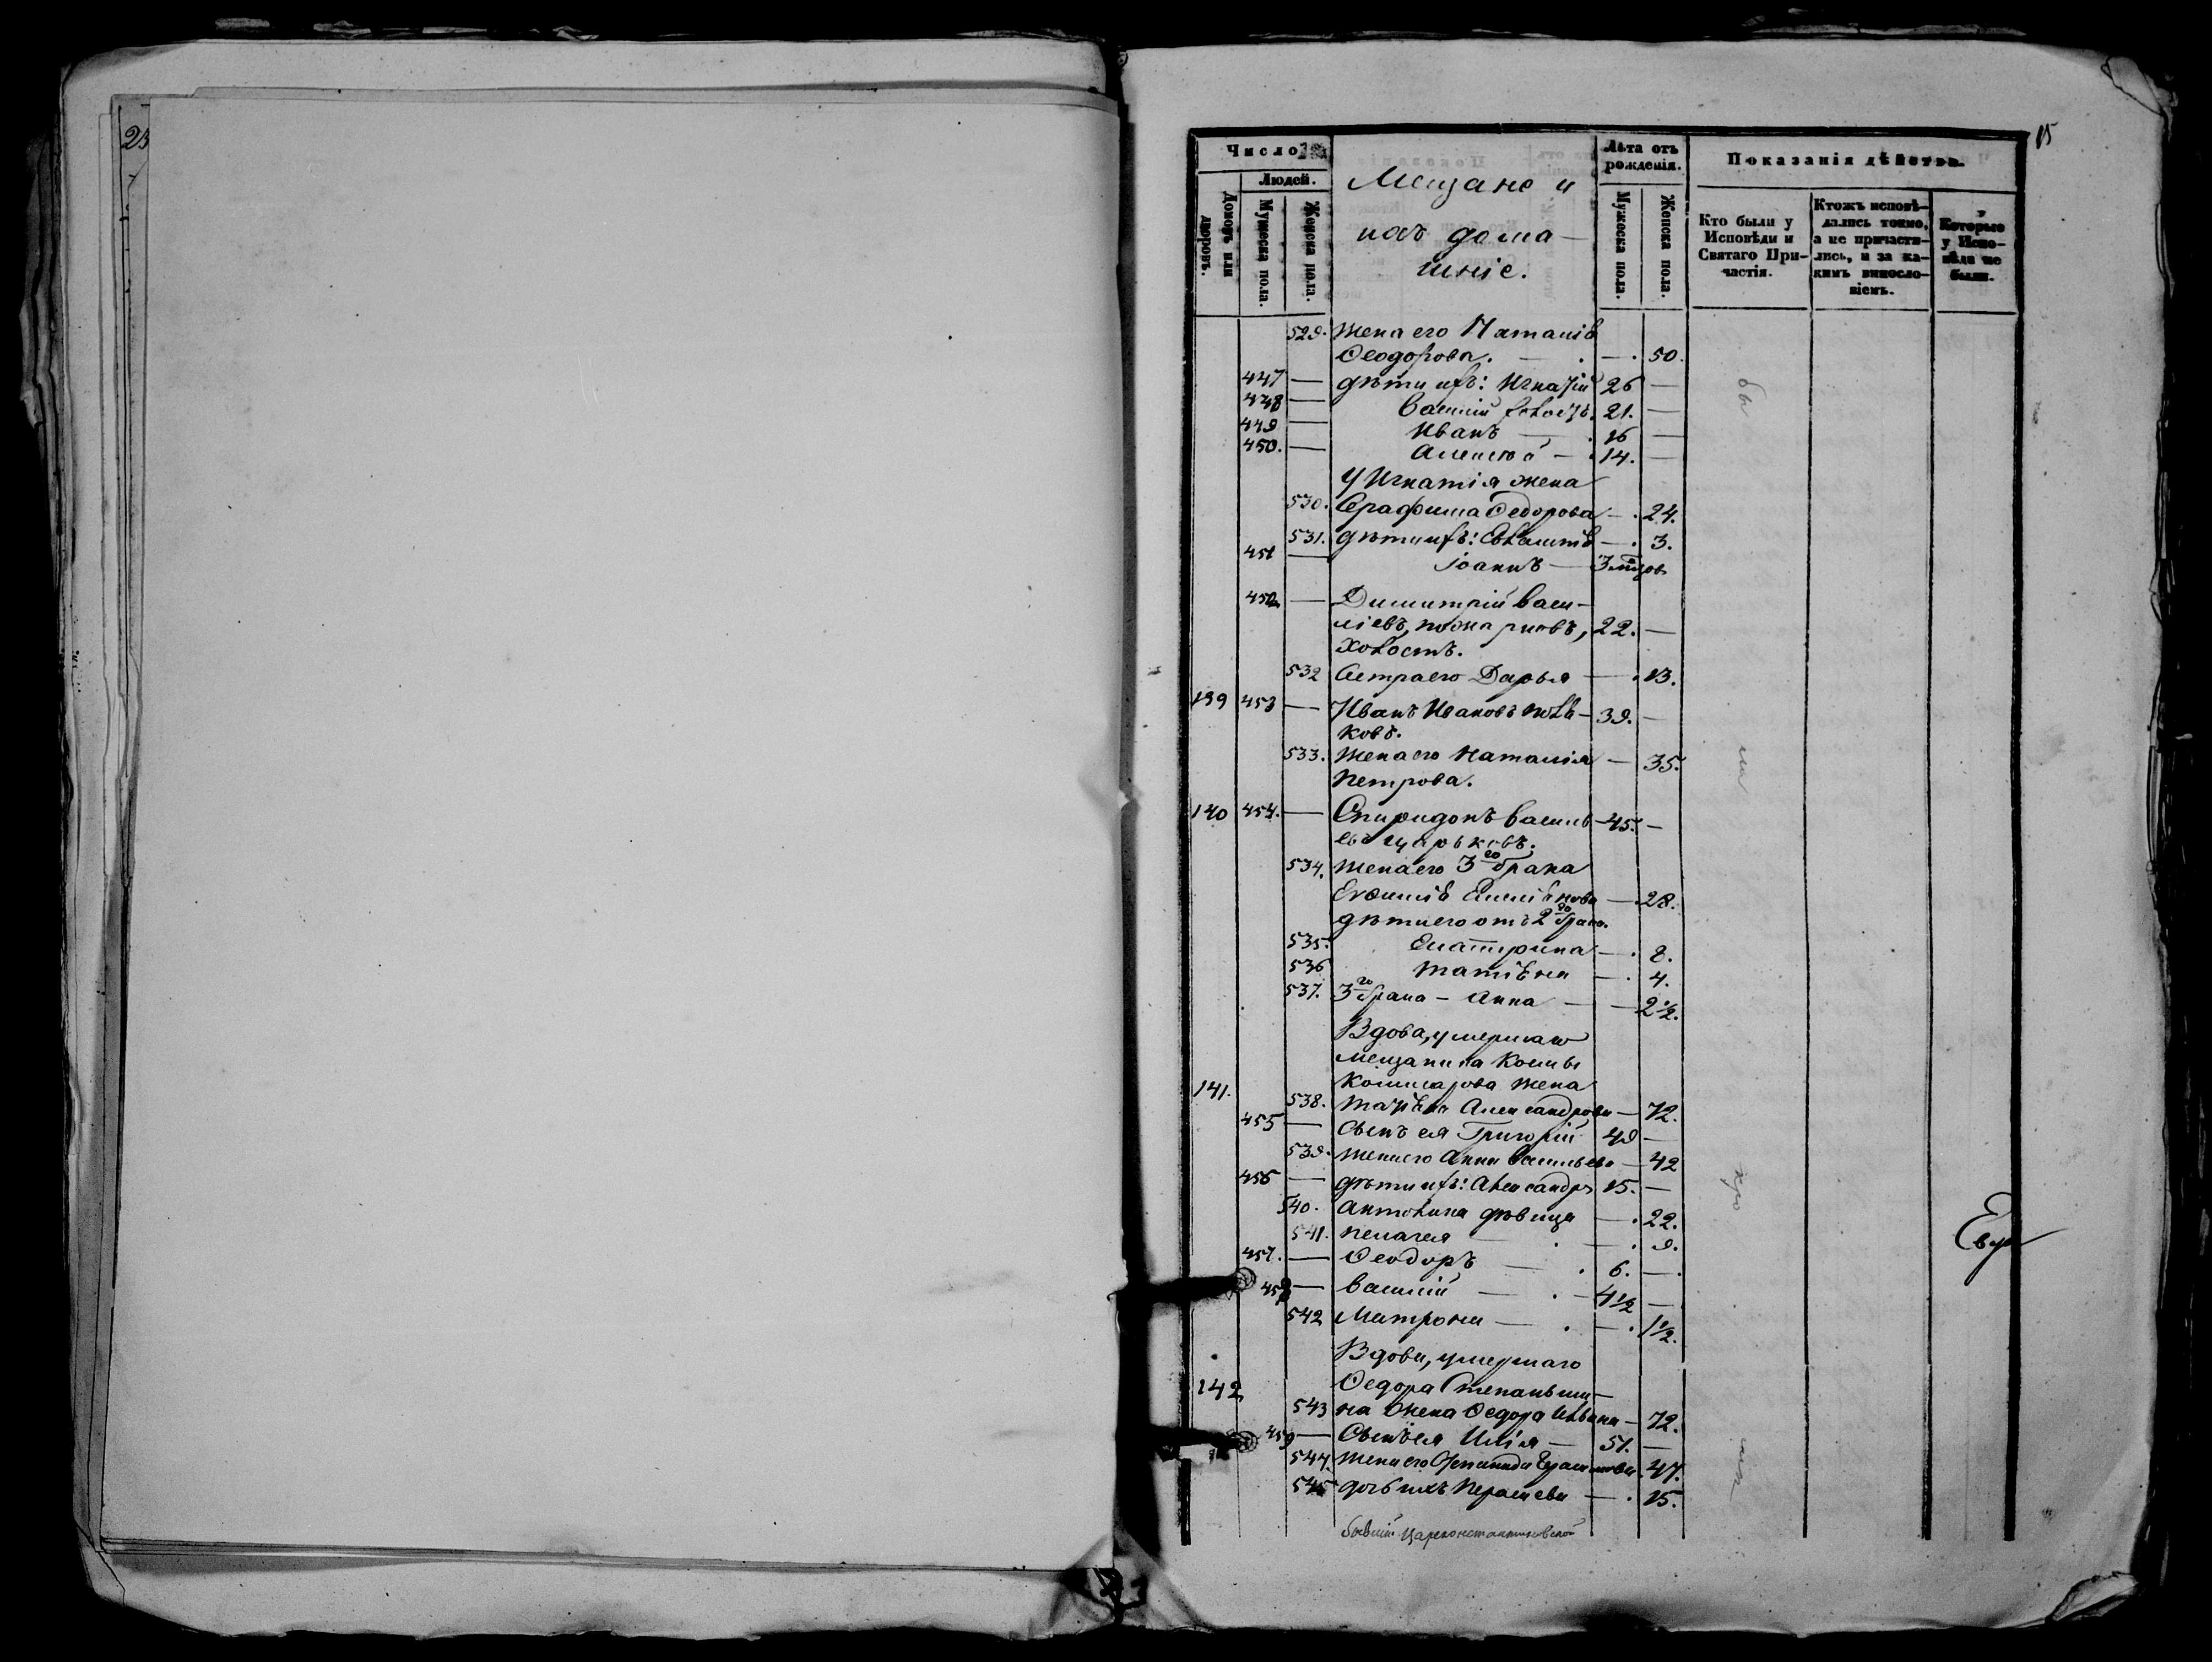 23
15
Число
Людей.
Домовъ или дворовъ.
Мужеска пола.
Женска пола.
Мещане и
ихъ дома-
шніе.
Лѣта отъ рожденія.
Мужеска пола.
Женска пола.
Показанія дѣйства.
Кто были у Исповѣди и Святаго Причастія.
Ктожъ исповѣдались токмо, а не причастились, и за какимъ винословіемъ.
Которые у Исповѣди не были.
529. жена его Наталія
Ѳеодорова. — 50.
447 — дѣти ихъ: Игнатій 26 —
448 — Василій холостъ. 21. —
449 — Иванъ — 16 —
450. — Алексѣй — 14. —
У Игнатія жена
530. Серафима Ѳедорова — 24.
531. дѣти ихъ: — 3.
451 — Іоаннъ —
452 — Димитрій Васи-
ліевъ, 22. —
холостъ.
532 Сестра его Дарья — 13.
139 453 — Иванъ Ивановъ — 39. —
ковъ.
533. жена его Наталія — 35.
Петрова.
140 454. — Спиридонъ Василь — 45. —
евъ Царьковъ.
534. жена его 3го брака
— 28.
дѣти его отъ 2го брака.
535. Екатерина — 8.
536 Татьяна — 4.
537. 3го брака — Анна — 2½.
Вдова, умершаго
мещанина Космы
141. Комисарова жена
538. Татьяна Александрова — 72.
455 — Сынъ ея Григорій 49 —
539. жена его Анна Васильева — 42
456 — дѣти ихъ: Александръ 15. —
540. Антонина дѣвица — 22.
541. Пелагея — 9.
457. — Ѳеодоръ — 6. —
458 — Василій — 4½ —
542 Матрона — 1½.
Вдова, умершаго
142 Ѳедора Степаньши-
543 на жена Ѳедора — 72.
459 — Сынъ ея Илія — 51. —
544. жена его 47.
545 дочь ихъ Параскева — 15.
бывшій Цареконстантиновской
бы
ли